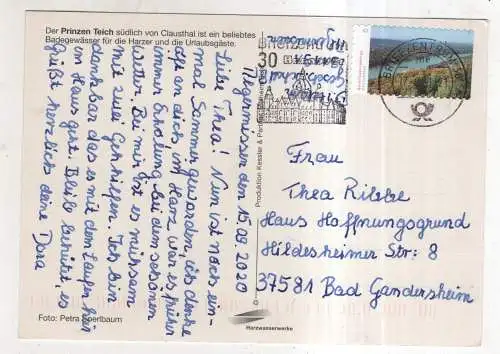 Der Prinzen Teich südlich von Clausthal ist ein beliebtes
Badegewässer für die Harzer und die Urlaubsgäste.
den 15.09.2020
Liebe Thea! Nun ist noch ein-
mal Sommer geworden, ich denke
oft an dich, im Harz war es früher
immer Erholung bei dem schönen
Wetter. Bei mir ist es mühsam
mit zwei Gehhilfen. Ich bin
dankbar das es mit dem Laufen hier
im Haus geht. Bleib behütet, es
Grüßt herzlich deine Dora
Foto: Petra Sperlbaum
Produktion Kessler & Partner
Harzwasserwerke
BRIEFZENTRUM
30
Frau
Thea Ribbe
Haus Hoffnungsgrund
Hildesheimer Str: 8
37581 Bad Gandersheim